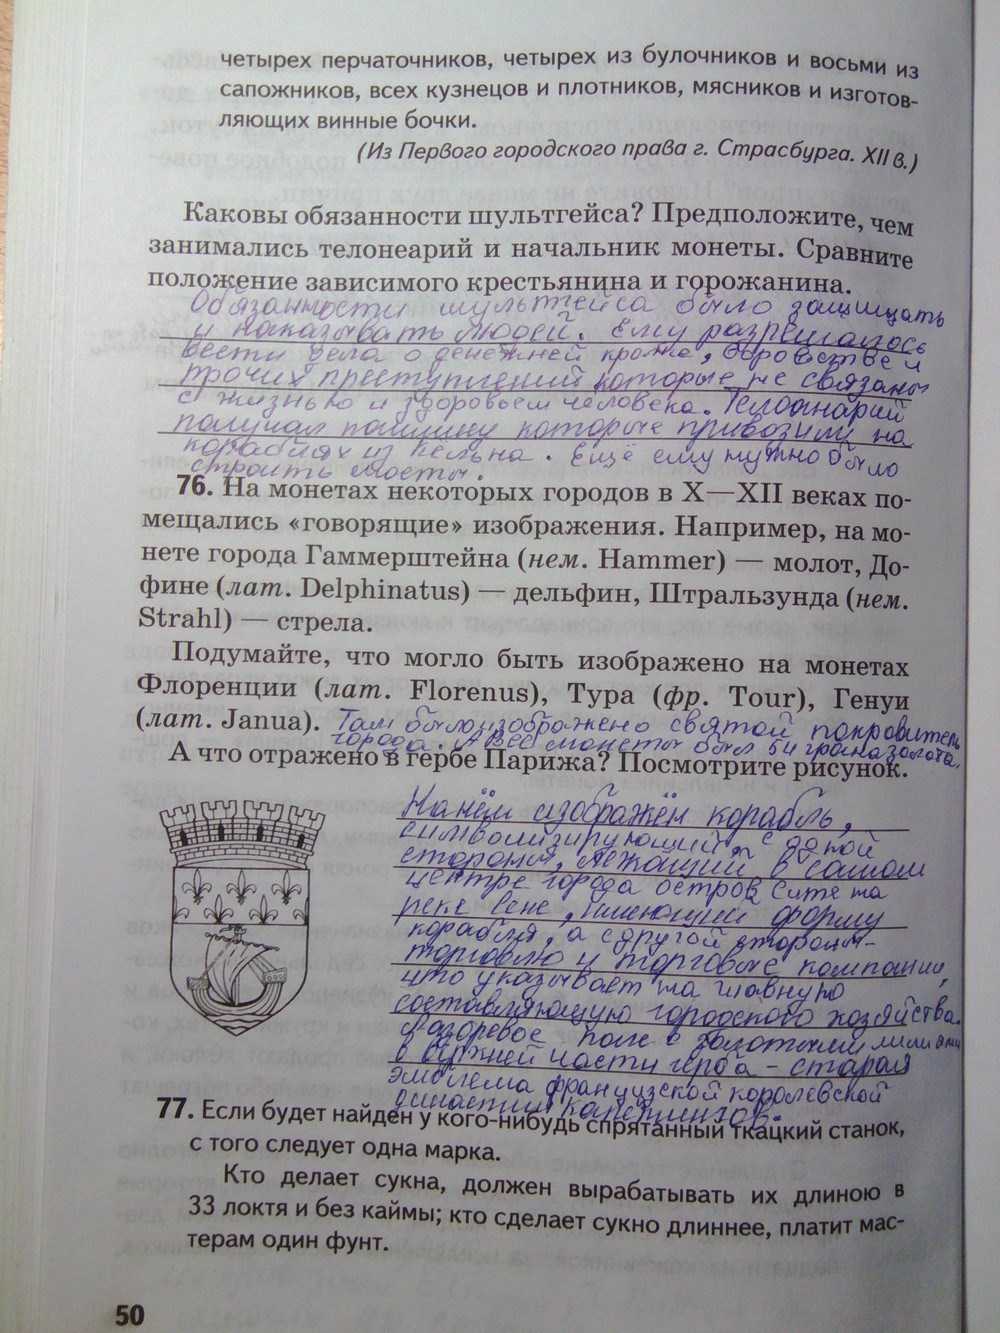 четырех перчаточников, четырех из булочников и восьми из
сапожников, всех кузнецов и плотников, мясников и изготов-
ляющих винные бочки.
(Из Первого городского права г. Страсбурга. XII в.)
Каковы обязанности шультгейса? Предположите, чем
занимались телонеарий и начальник монеты. Сравните
положение зависимого крестьянина и горожанина.
Обязанности шультгейса было защищать
и наказывать людей. Ему разрешалось
вести дела о денежней краже, воровстве и
прочих преступлений которые не связаны
с жизнью и здоровьем человека. Телоанарий
получал пошлину которые привозили на
кораблях из Кельна. Ещё ему нужно было
строить мосты.
76. На монетах некоторых городов в X—XII веках по-
мещались «говорящие» изображения. Например, на мо-
нете города Гаммерштейна (нем. Hammer) — молот, До-
фине (лат. Delphinatus) — дельфин, Штральзунда (нем.
Strahl) — стрела.
Подумайте, что могло быть изображено на монетах
Флоренции (лат. Florenus), Тура (фр. Tour), Генуи
(лат. Janua). Там было изображено святой покровитель
города. А вес монеты был 54 грана золота.
А что отражено в гербе Парижа? Посмотрите рисунок.
На нём изображён корабль,
символизирующий, с одной
стороны, лежащий в самом
центре города остров Сите на
реке Сене, имеющий форму
корабля, а с другой стороны-
торговлю и торговые компании,
что указывает на главную
составляющую городского хозяйства.
Лазоревое поле с золотыми лилиями
в верхней части герба - старая
эмблема французской королевской
династии Капетингов.
77. Если будет найден у кого-нибудь спрятанный ткацкий станок,
с того следует одна марка.
Кто делает сукна, должен вырабатывать их длиною в
33 локтя и без каймы; кто сделает сукно длиннее, платит мас-
терам один фунт.
50